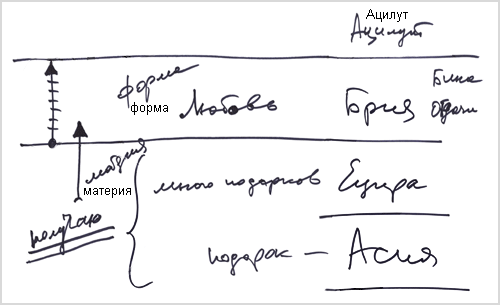 Ацилут
Ацилут
форма
форма
Любовь
Брия
Бина
материя
материя
много подарков
Ецира
получаю
подарок — Асия